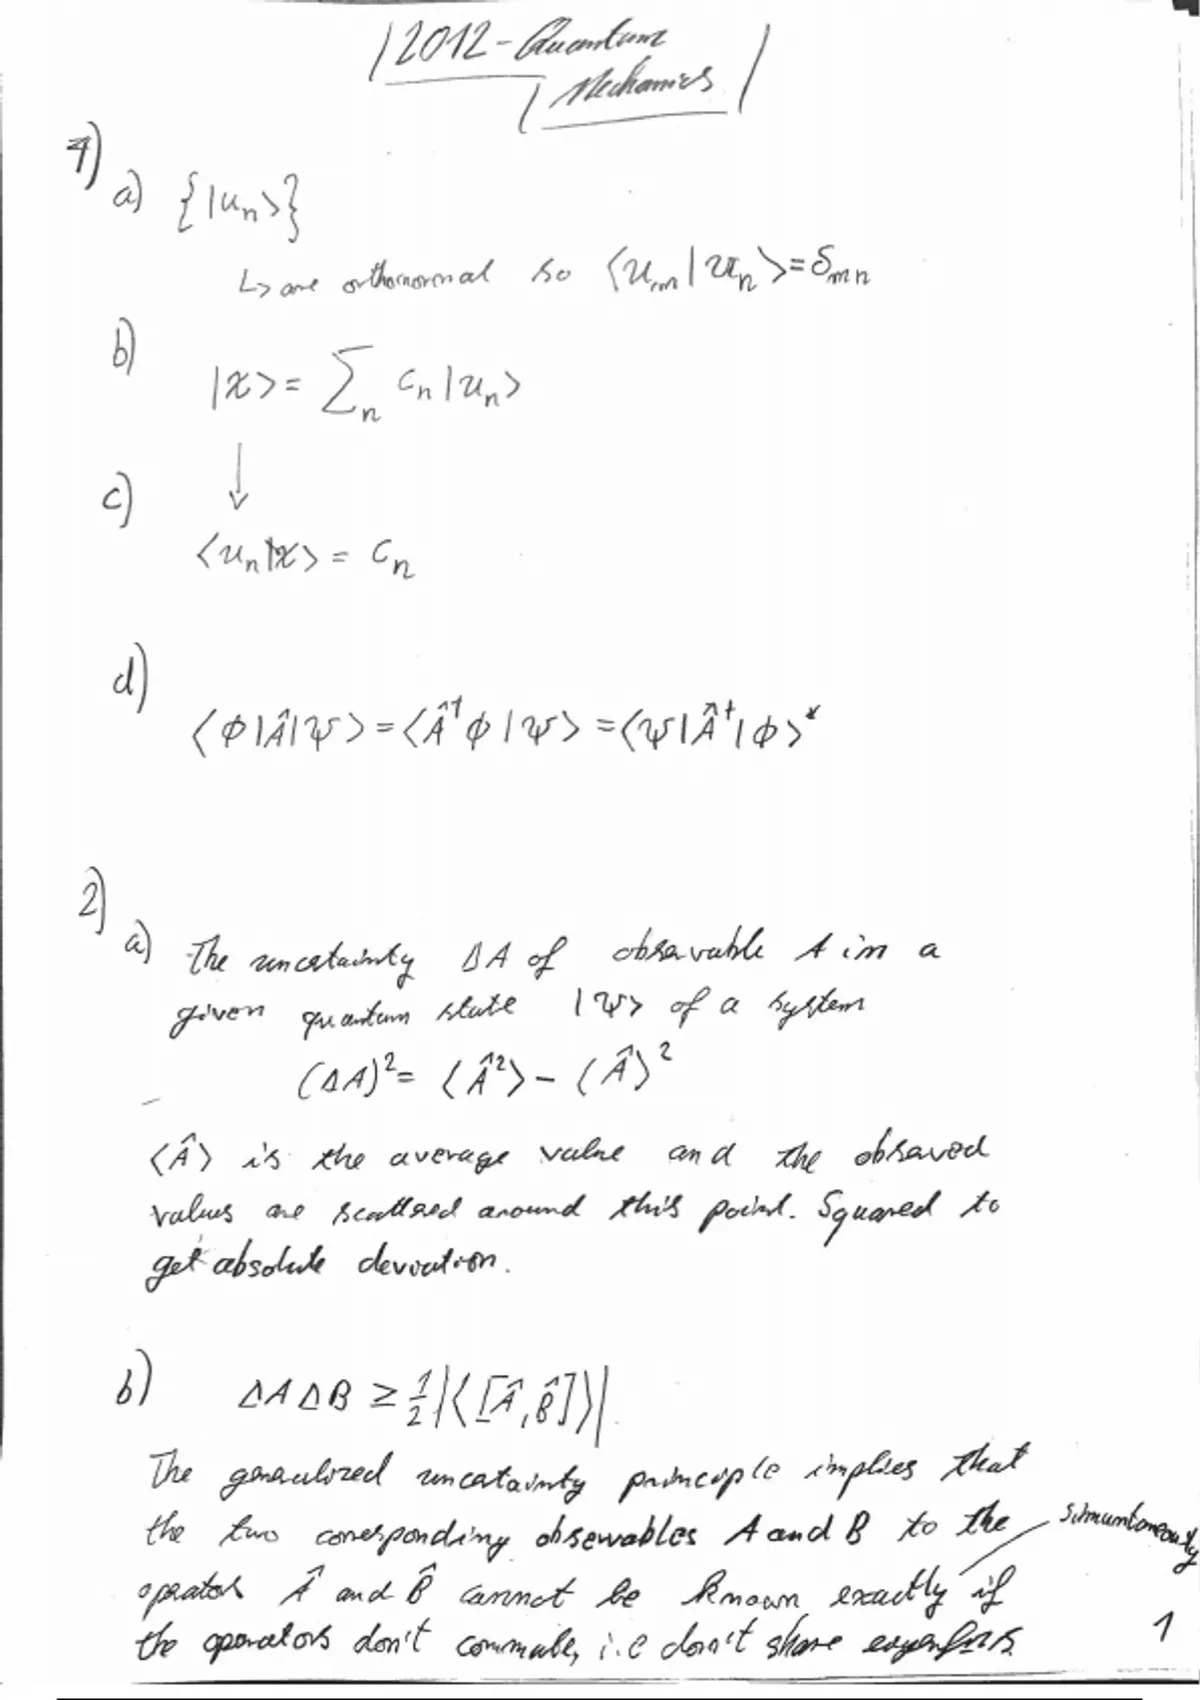 2012 - Quantum
Mechanics
1)
a) {|uₙ>}
↳ are orthonormal so <uₘ|uₙ> = δₘₙ
b)
|χ> = Σₙ cₙ|uₙ>
↓
c)
<uₙ|χ> = cₙ
d)
<ϕ|Â|ψ> = <Â†ϕ|ψ> = <ψ|Â†|ϕ>*
2)
a) The uncertainty ΔA of observable A in a
given quantum state |ψ> of a system
(ΔA)² = <Â²> - <Â>²
<Â> is the average value and the observed
values are scattered around this point. Squared to
get absolute deviation.
b) ΔAΔB ≥ ½|<[Â,B̂]>|
The generalized uncertainty principle implies that
the two corresponding observables A and B to the
simuntaneously
operators Â and B̂ cannot be known exactly if
the operators don't commute, i.e don't share
1